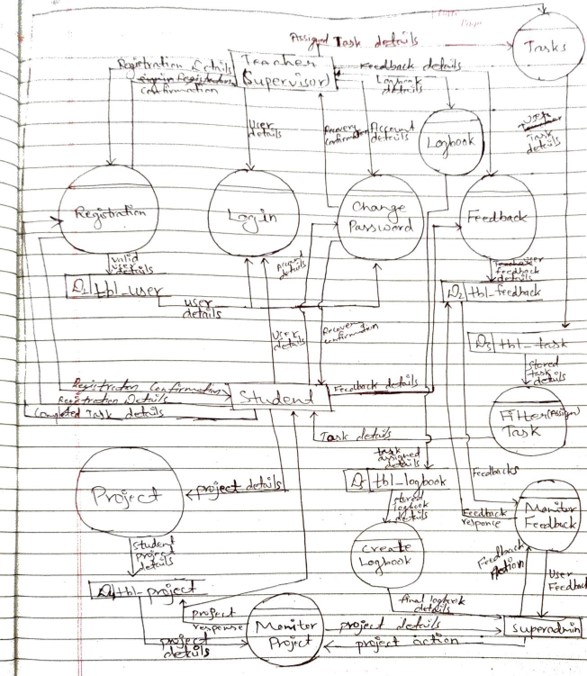 Assigned Task details
Tasks
Registration details
Teacher
(Supervisor)
Feedback details
Registration
confirmation
Logbook
details
User
details
Recovery
confirmation
Account
details
Logbook
Task
details
Registration
Login
Change
Password
Feedback
valid
details
Account
details
feedback
details
D1 tbl_user
user
details
D2 tbl-feedback
User
details
Recovery
confirmation
D5 tbl-task
Stored
task
details
Registration Confirmation
Registration Details
Completed Task details
Student
Feedback details
Filter(Assign)
Task
Task details
task
assigned
details
Project
project details
tbl-logbook
Feedbacks
stored
logbook
details
Feedback
response
Monitor
Feedback
student
project
details
Create
Logbook
Feedback
Action
User
Feedback
tbl-project
project
response
final logbook
details
project
details
Monitor
Project
project details
superadmin
project action